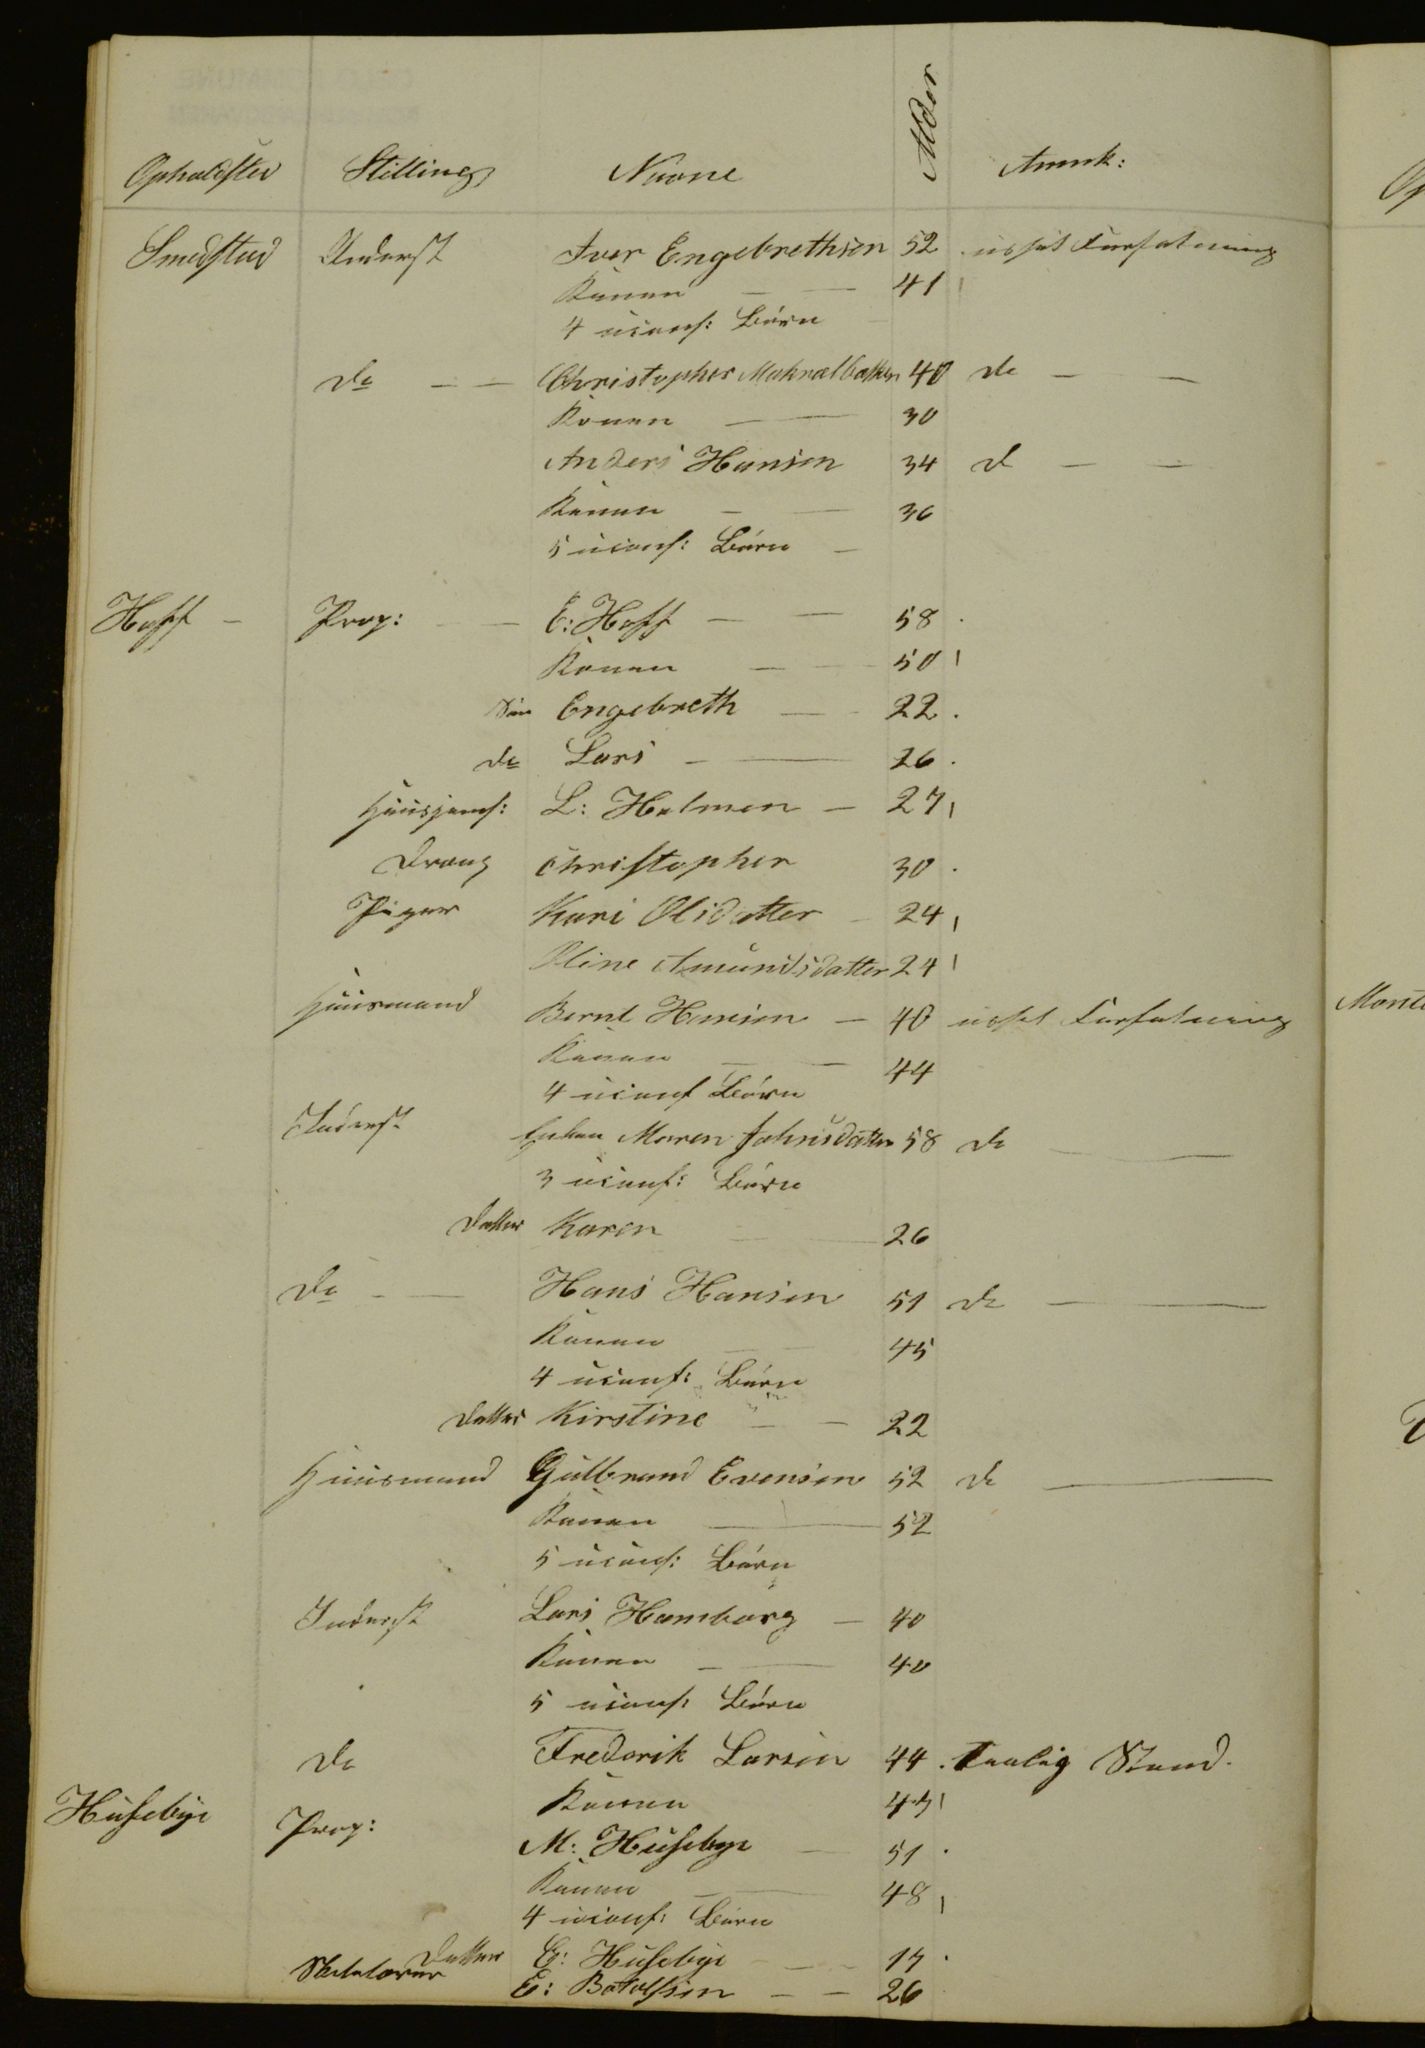 Opholdsted Stilling Navne Alder Anmk:
Smedstad Inderst Iver Engebrethsen 52 ussel Forfatning
Konen — — 41
4 uconf: Börn
do — — Christopher 40 do — —
Konen — 30
Anders Hansen 34 do — —
Konen — — 36
5 uconf: Börn —
Hoff — Prop: — — E: Hoff — — 58
Konen — — 50
Sön Engebreth — 22
do Lars — — 26
Huusjomf: L: Holmen — 27
Dreng Christopher 30
Piger Kari Olsdatter 24
Oline Amundsdatter 24
Huusmand Bernt Hansen — 40 ussel Forfatning
Konen — — 44
4 uconf Börn
Inderst Enken Maren Johnsdatter 58 do —
3 uconf: Börn
Datter Karen — 26
do — — Hans Hansen 51 do —
Konen — — 45
4 uconf: Börn
Datter Kirstine — — 22
Huusmand Gulbrand Evensen 52 do —
Konen — 52
5 uconf: Börn
Inderst Lars Hamborg — 40
Konen — — 40
5 uconf: Börn
do Frederik Larsen 44 Taalig Stand.
Konen 47
Husebye Prop: M: Husebye — 51
Konen — 48
4 uconf: Börn
Datter E: Husebye — — 17
Skolelærer E: Botolfsen — — 26